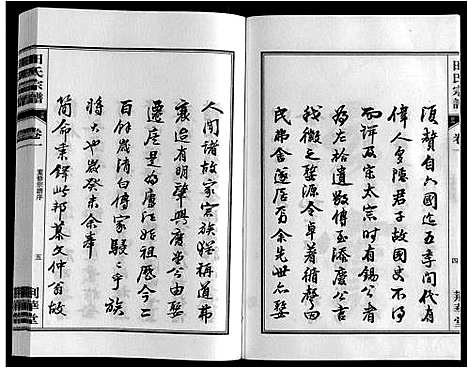 田氏宗譜
卷一
四
荊華堂
須贊自六國迄五季間代有
偉人多隱君子故國史不得
而評及宗太宗時有錫公者
為左拾遺數傳至添慶公言
我徽之婺源令卓著循聲四
民弗舍遂居焉余先世亦婺
田氏宗譜
卷一
重修宗譜序
五
荊華堂
人間諸故家宗族渥稱道弗
衰迨有明肇興廣富公由婺
遷居是為唐江始祖感今二
百餘歲清白傳家駸駸乎族
時大也歲癸未余奉
簡命秉鐸此邦慕文仲翁故